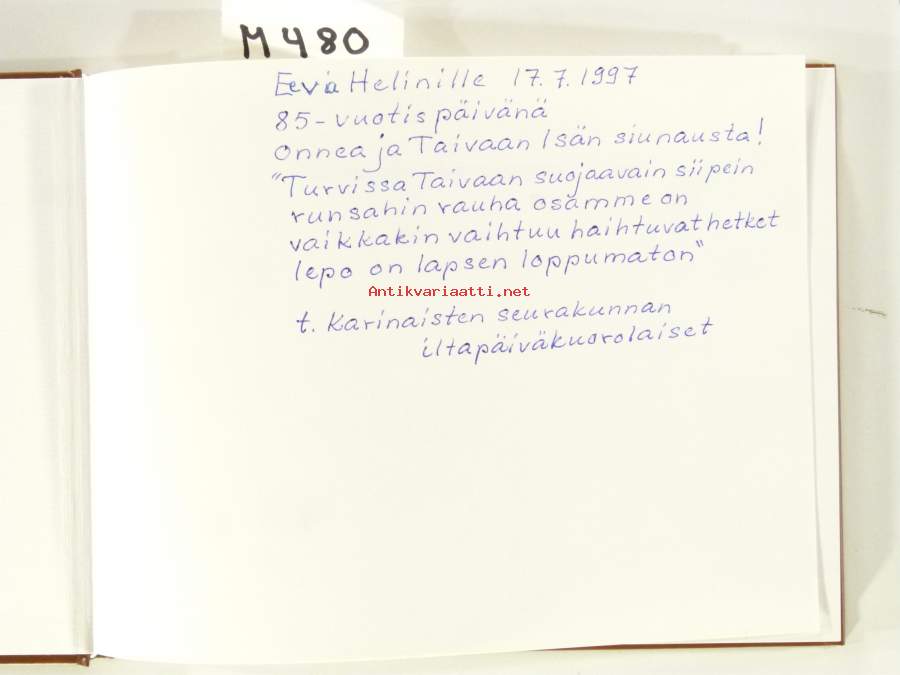 M 480
Eeva Helinille 17.7.1997
85-vuotis päivänä
Onnea ja Taivaan Isän siunausta!
"Turvissa Taivaan suojaavain siipein
runsahin rauha osamme on
vaikkakin vaihtuu haihtuvat hetket
lepo on lapsen loppumaton"
Antikvariaatti.net
t. Karinaisten seurakunnan
iltapäiväkuorolaiset